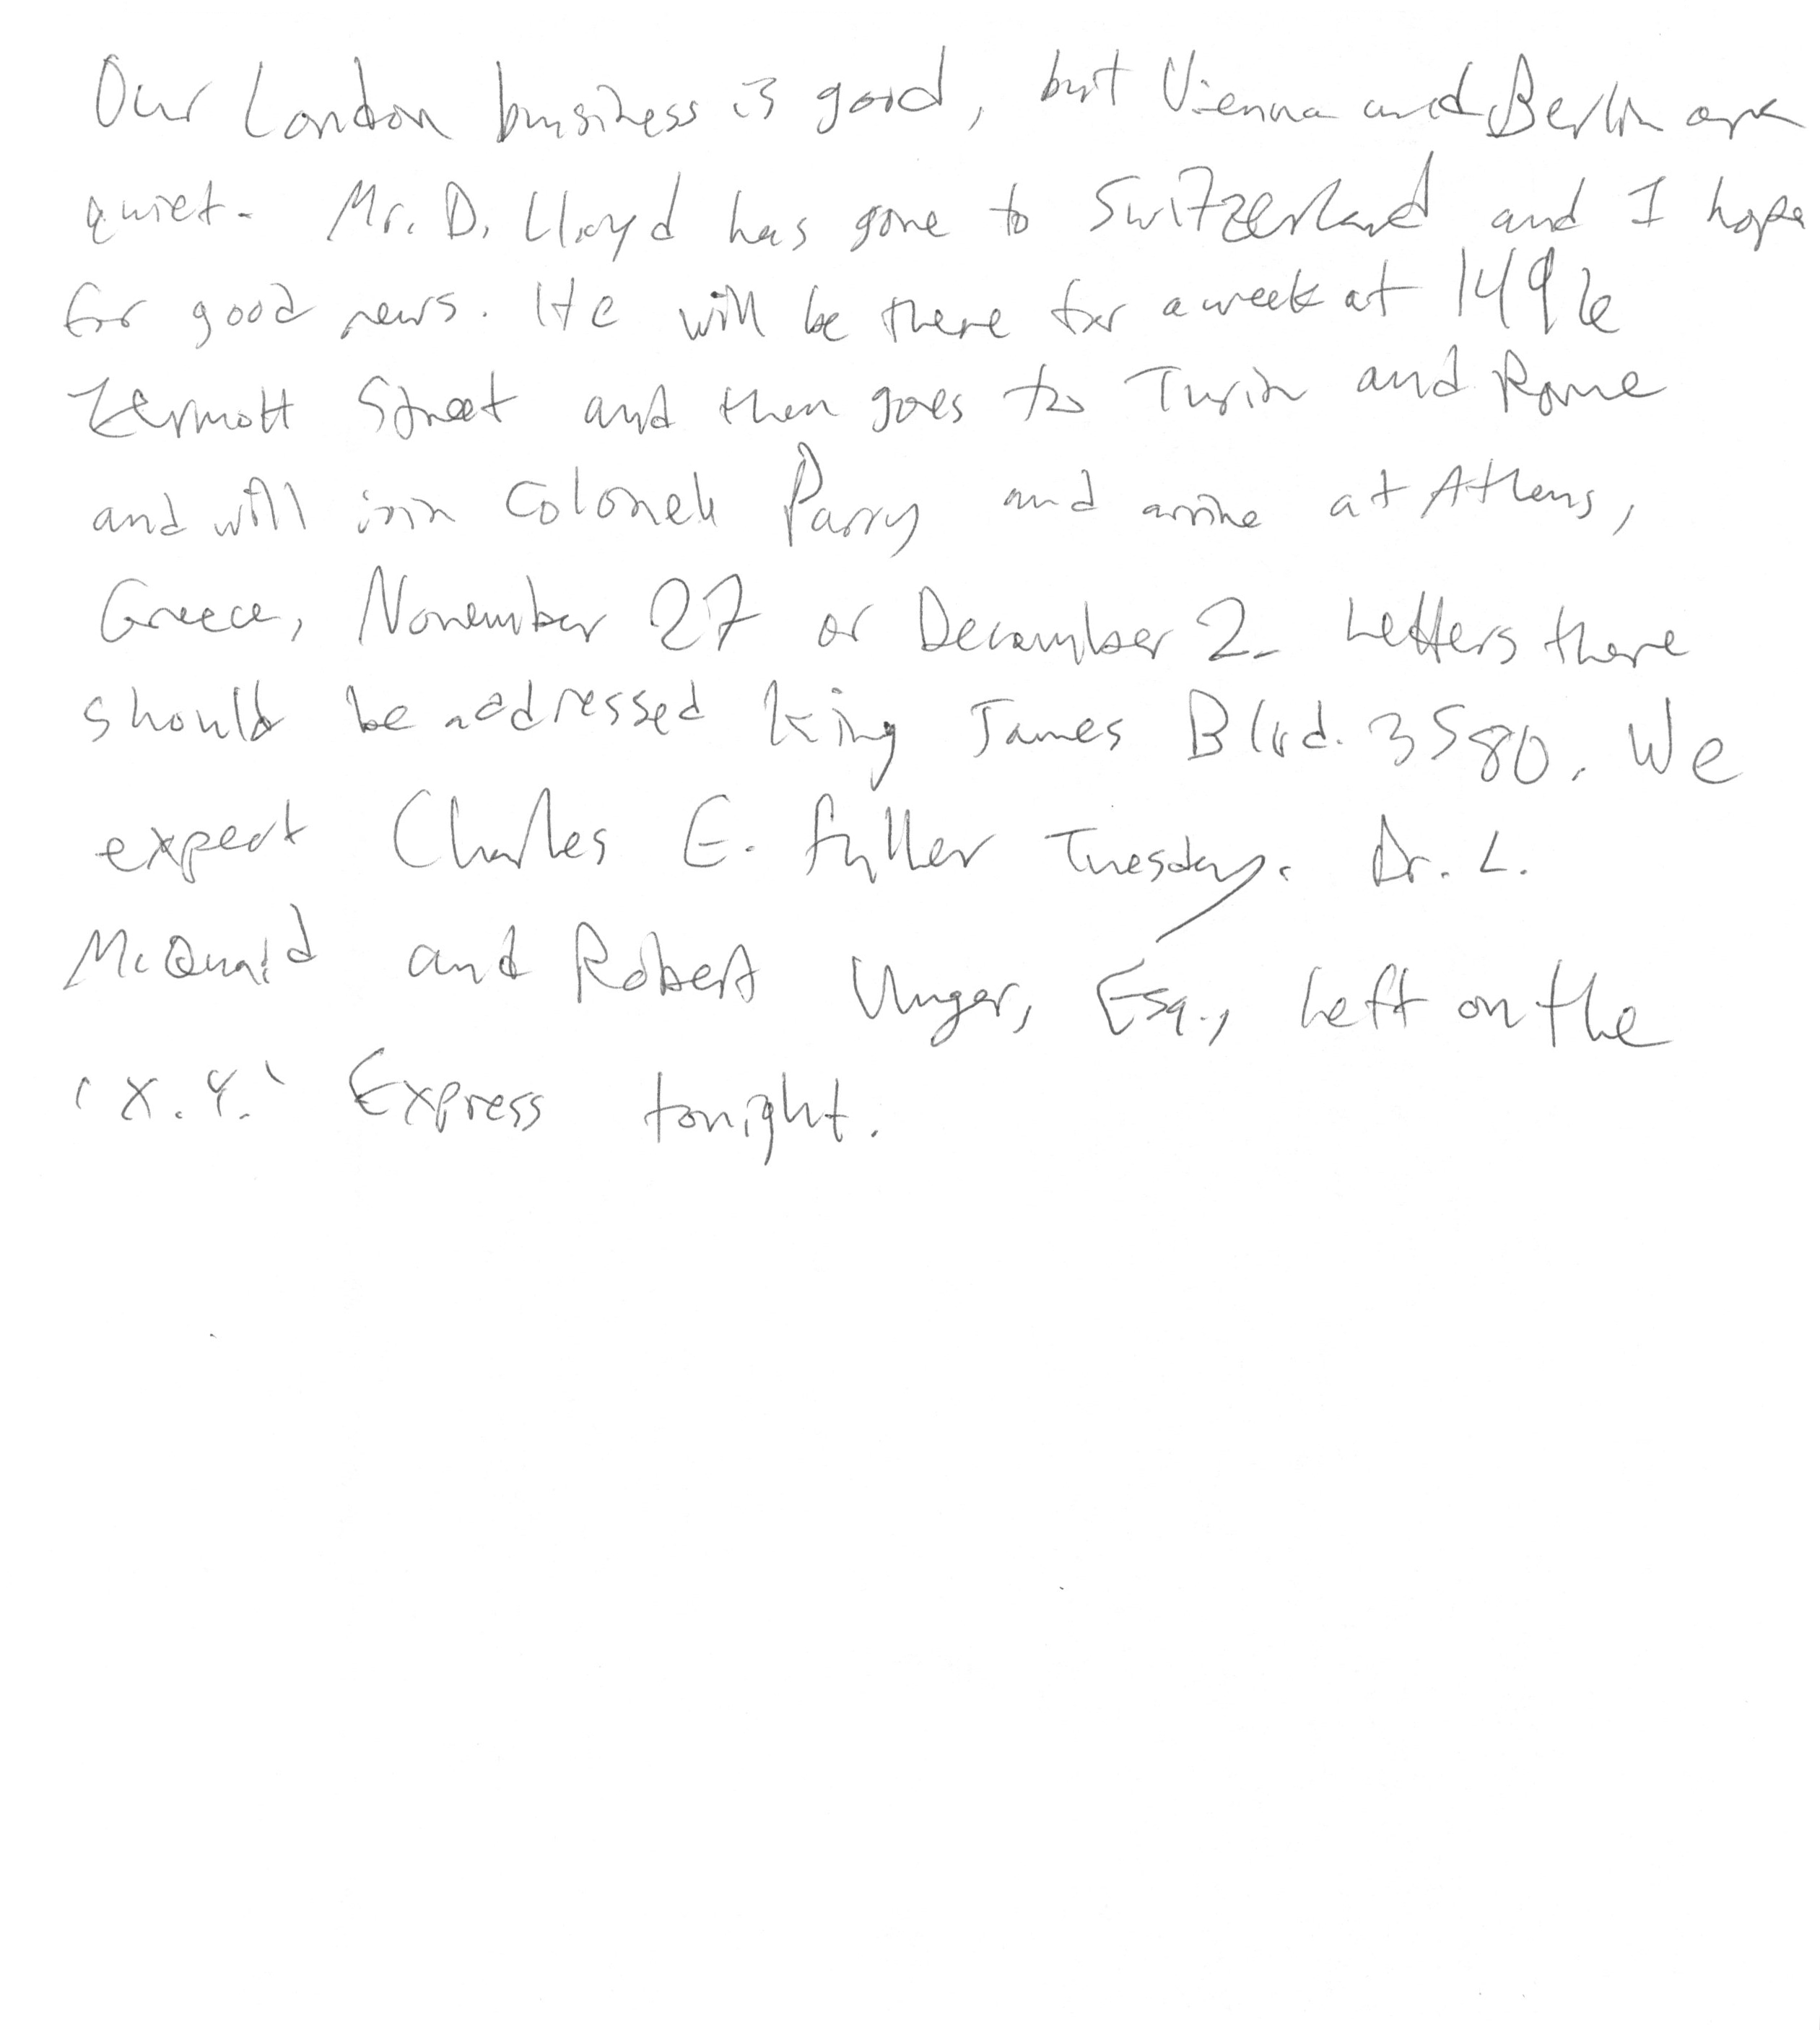 Our London business is good, but Vienna and Berlin are
quiet. Mr. D. Lloyd has gone to Switzerland and I hope
for good news. He will be there for a week at 1496
Zermott Street and then goes to Turin and Rome
and will join Colonel Parry and arrive at Athens,
Greece, November 27 or December 2. Letters there
should be addressed King James Blvd. 3580. We
expect Charles E. Fuller Tuesday. Dr. L.
McQuaid and Robert Unger, Esq., left on the
'X.Y.' Express tonight.